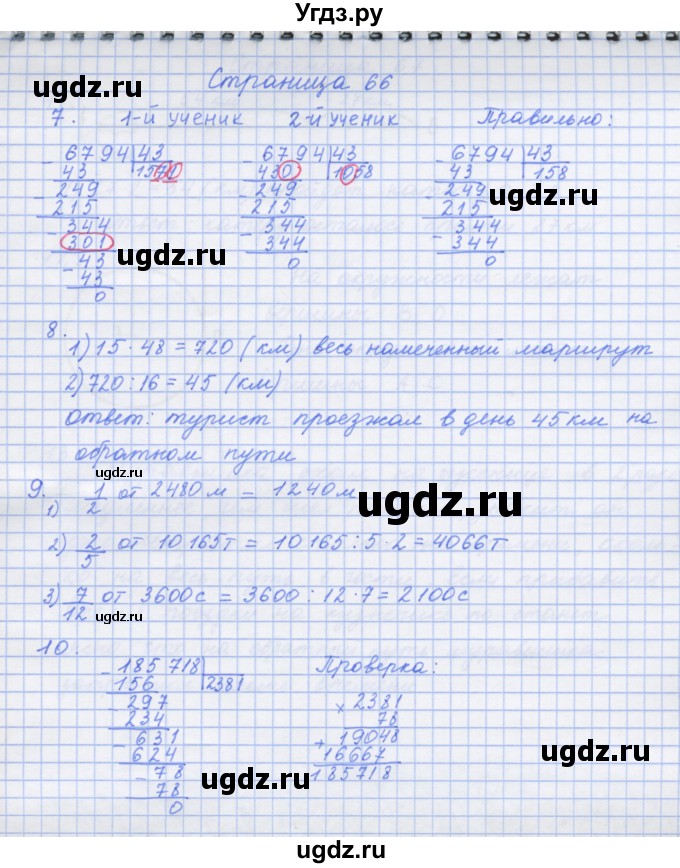 Угдз.ру
Страница 66
7. 1-й ученик 2-й ученик Правильно:
- 6794|43 - 6794|43 - 6794|43
43 1571 430 1058 43 158
- 249 - 249 - 249
215 215 215
- 344 - 344 - 344
301 344 344
- 43 0 0
43
0
8.
1) 15 · 48 = 720 (км) весь намеченный маршрут
2) 720 : 16 = 45 (км)
ответ: турист проезжал в день 45 км на
обратном пути
9.
1) 1/2 от 2480 м = 1240 м
2) 2/5 от 10165 т = 10165 : 5 · 2 = 4066 т
3) 7/12 от 3600 с = 3600 : 12 · 7 = 2100 с
10.
- 185 718| Проверка:
156 2381
- 297 × 2381
234 78
- 631 + 19048
624 16667
- 78 185718
78
0
ugdz.ru
ugdz.ru
ugdz.ru
ugdz.ru
ugdz.ru
ugdz.ru
ugdz.ru
ugdz.ru
ugdz.ru
ugdz.ru
ugdz.ru
ugdz.ru
Угдз.ру